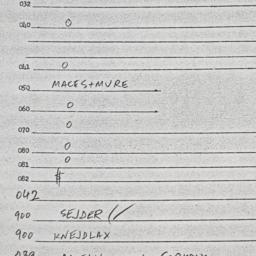 032
040 0
041 0
050 MACES+MURE
060 0
070 0
080 0
081 0
082 #
042
900 SEJDER //
900 KNEJDLAX